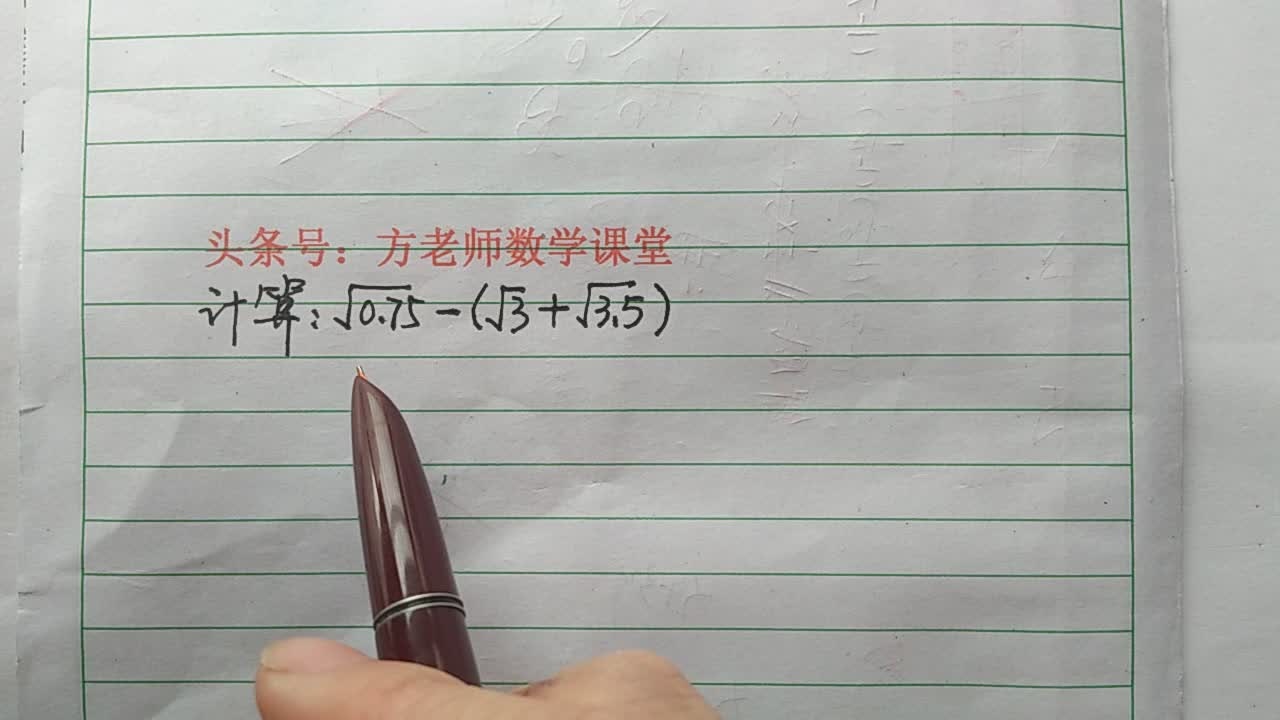 头条号：方老师数学课堂
计算：√0.75－（√3＋√3.5）